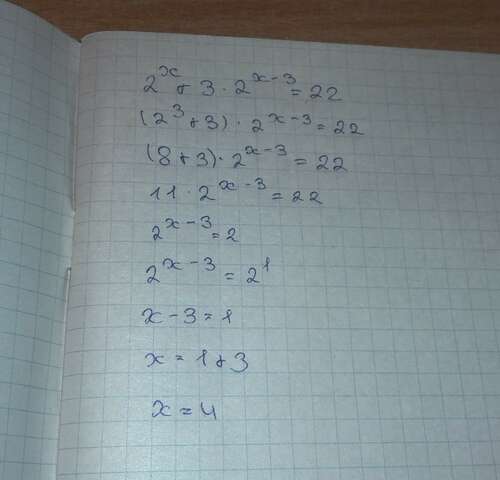 2^x + 3 · 2^(x-3) = 22
(2^3 + 3) · 2^(x-3) = 22
(8 + 3) · 2^(x-3) = 22
11 · 2^(x-3) = 22
2^(x-3) = 2
2^(x-3) = 2^1
x - 3 = 1
x = 1 + 3
x = 4